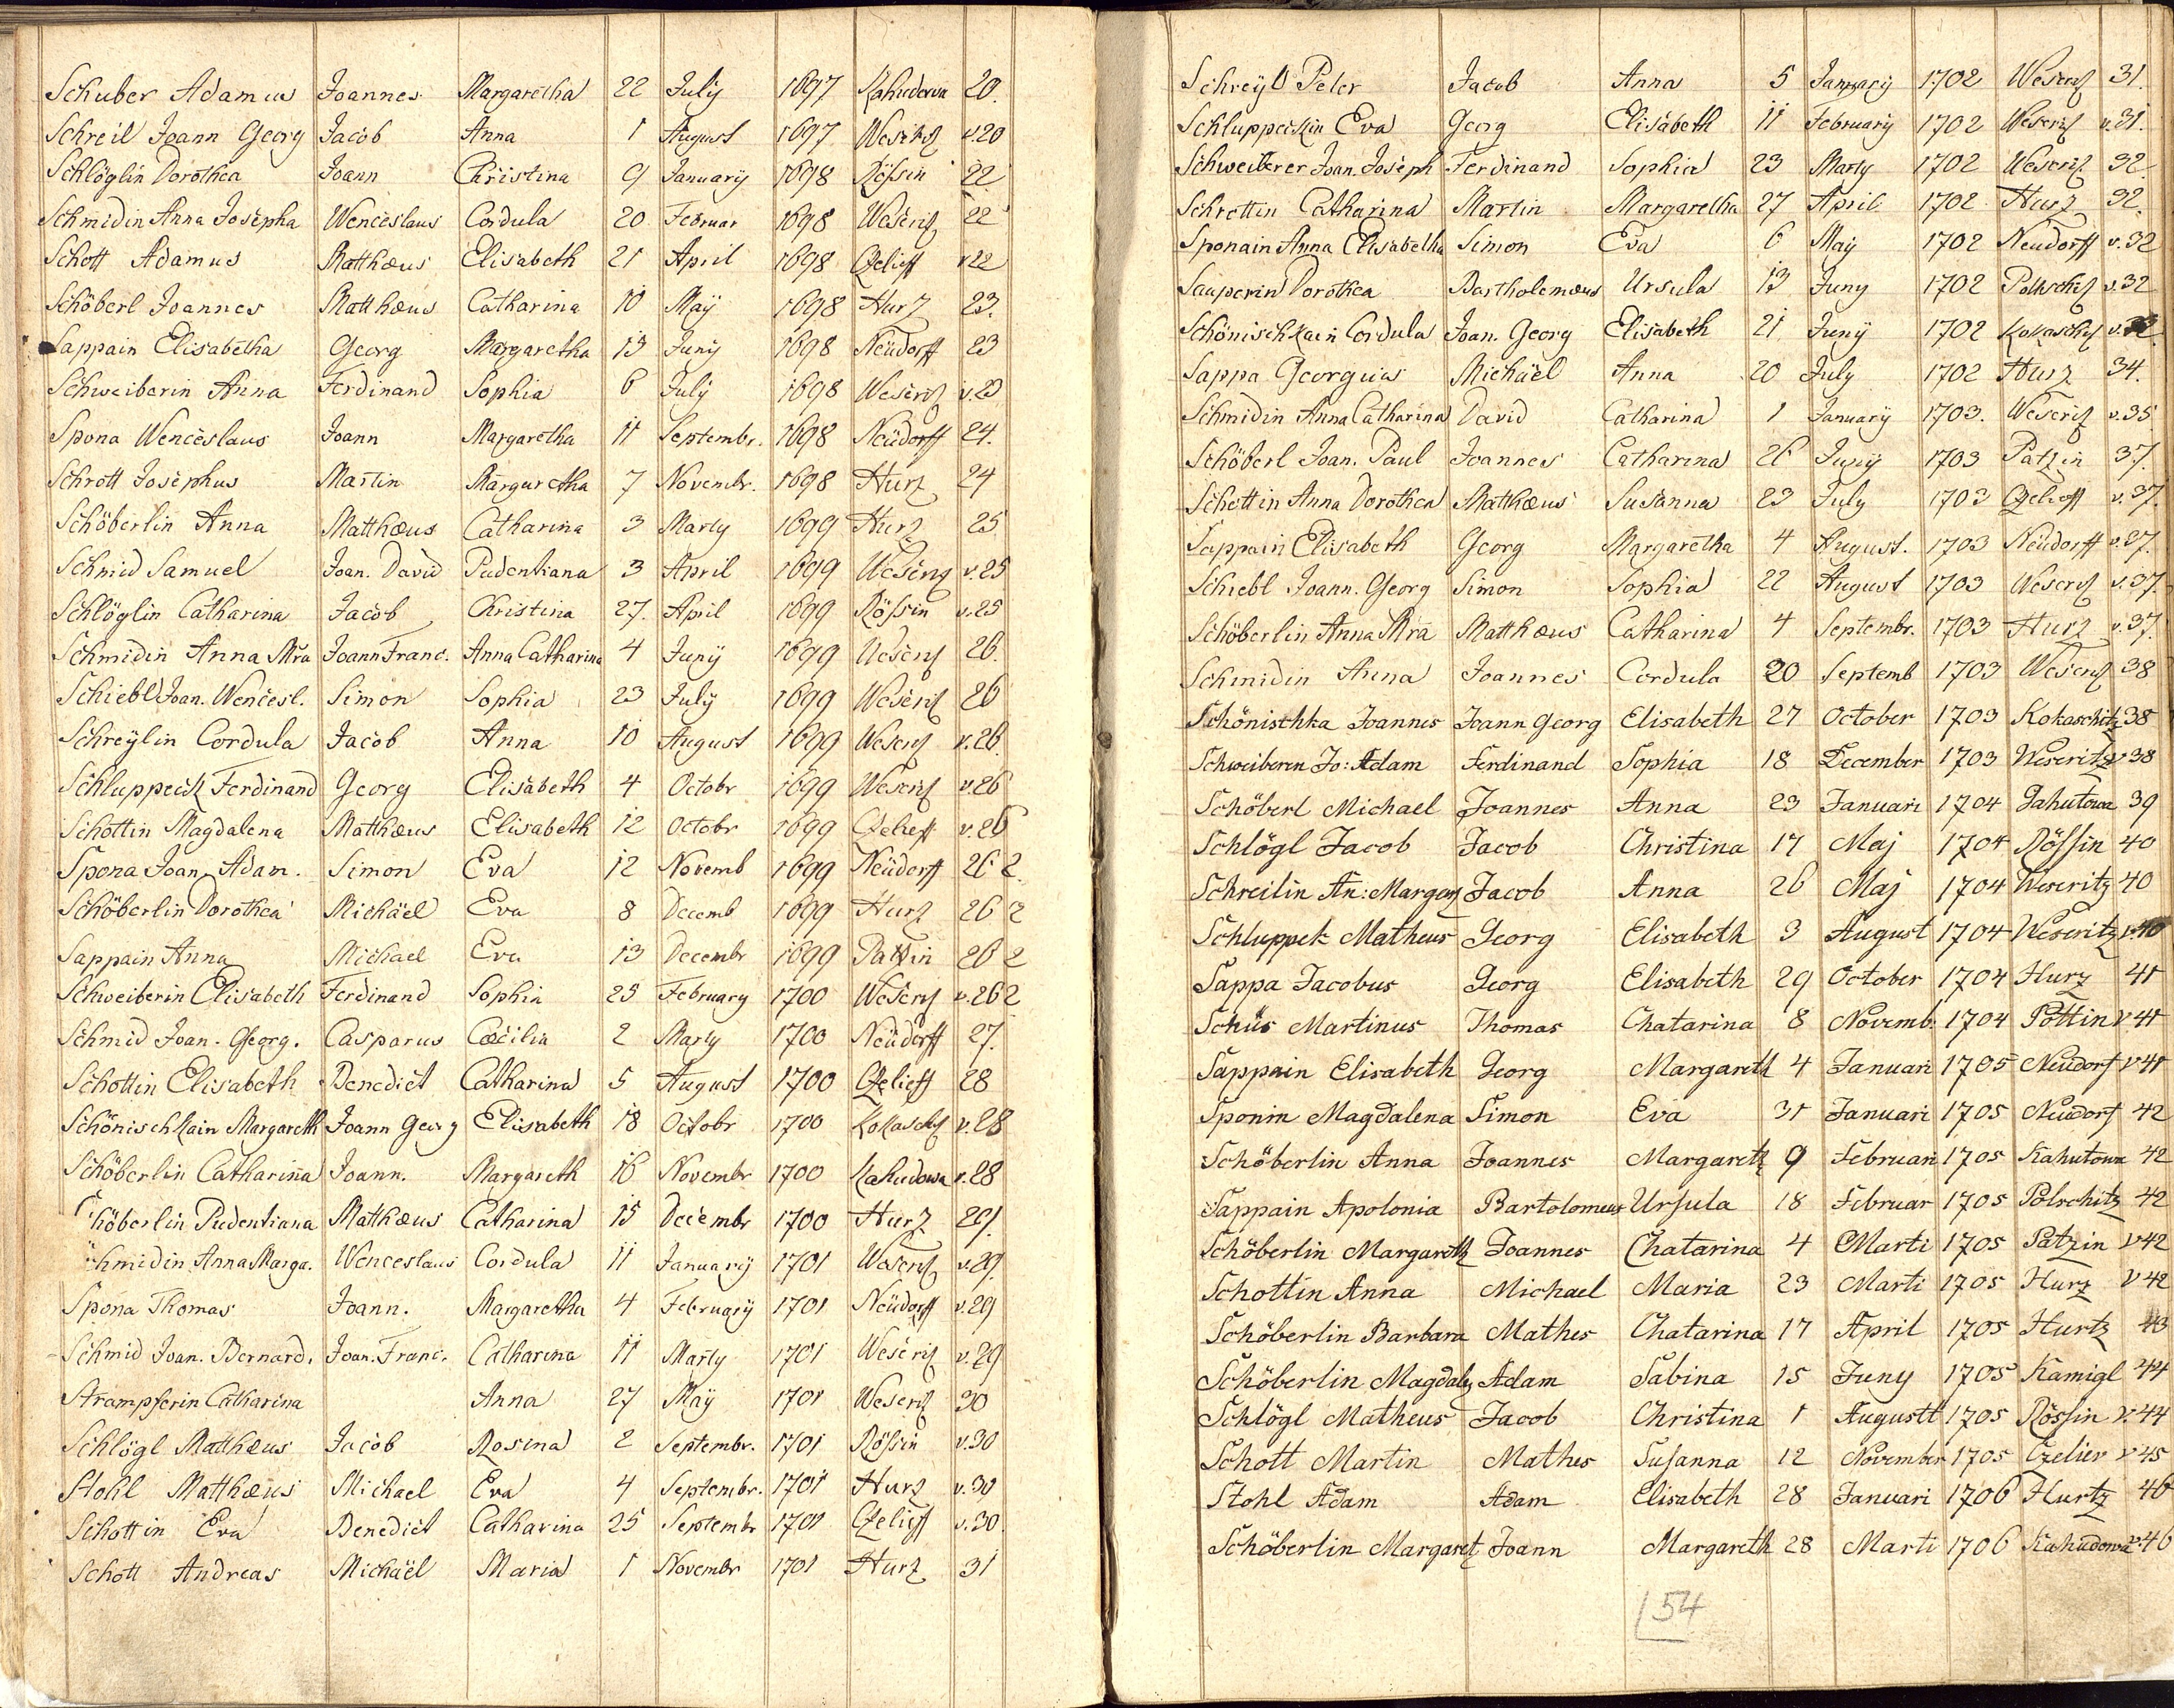 Schuber Adamus Joannes Margaretha 22 July 1697 Kahudowa 20.
Schreil Joann Georg Jacob Anna 1 August 1697 Weseritz v.20
Schlöglin Dorothea Joann Christina 9 January 1698 Rößin 22
Schmidin Anna Josepha Wenceslaus Cordula 20 Februar 1698 Weseritz 22
Schott Adamus Matthæus Elisabeth 21 April 1698 Czelieff v22
Schöberl Joannes Matthæus Catharina 10 Maÿ 1698 Hurz 23.
Sappain Elisabetha Georg Margaretha 13 Juny 1698 Neüdorff 23
Schweiberin Anna Ferdinand Sophia 6 July 1698 Weseritz v.23
Spona Wenceslaus Joann Margaretha 11 Septembr. 1698 Neüdorff 24.
Schrott Josephus Martin Margaretha 7 Novembr. 1698 Hurz 24
Schöberlin Anna Matthæus Catharina 3 Marty 1699 Hurz 25
Schmid Samuel Joan. David Pudentiana 3 April 1699 Weseritz v.25
Schlöglin Catharina Jacob Christina 27. April 1699 Rößin v.25
Schmidin Anna Mra Joann Franc. Anna Catharina 4 Junÿ 1699 Weseritz 26.
Schiebl Joan. Wencesl. Simon Sophia 23 July 1699 Weseritz 26
Schreÿlin Cordula Jacob Anna 10 August 1699 Weseritz v.26.
Schluppeck Ferdinand Georg Elisabeth 4 Octobr 1699 Weseritz v.26
Schottin Magdalena Matthæus Elisabeth 12 Octobr 1699 Czelieff v.26
Spona Joan Adam. Simon Eva 12 Novemb 1699 Neüdorff 26 2.
Schöberlin Dorothea Michäel Eva 8 Decemb 1699 Hurz 26 2
Sappain Anna Michael Eva 13 Decembr 1699 Patzin 26 2
Schweiberin Elisabeth Ferdinand Sophia 25 February 1700 Weseritz v.26 2
Schmid Joan. Georg. Casparus Cæcilia 2 Marty 1700 Neüdorff 27.
Schottin Elisabeth Benedict Catharina 5 August 1700 Czelieff 28
Schönischkain Margareth Joann Georg Elisabeth 18 Octobr 1700 Kokaschitz v.28
Schöberlin Catharina Joann. Margareth 16 Novembr 1700 Kahudowa v.28
Schöberlin Pudentiana Matthæus Catharina 15 Decembr 1700 Hurz 29.
hmidin Anna Marga. Wenceslaus Cordula 11 Januarÿ 1701 Weseritz v.29.
Spona Thomas Joann. Margaretha 4 Februarÿ 1701 Neüdorff v.29
Schmid Joan. Bernard. Joan. Franc. Catharina 11 Marty 1701 Weseritz v.29
Strampferin Catharina Anna 27 Maÿ 1701 Weseritz 30
Schlögl Matthæus Jacob Rosina 2 Septembr. 1701 Rößin v.30
Stohl Matthæus Michael Eva 4 Septembr. 1701 Hurz v.30
Schottin Eva Benedict Catharina 25 Septembr 1701 Czelieff v.30.
Schott Andreas Michäel Maria 1 Novembr 1701 Hurz 31
Schreÿl Peter Jacob Anna 5 Januarÿ 1702 Weseritz 31.
Schluppeckin Eva Georg Elisabeth 11 Februarÿ 1702 Weseritz v.31.
Schweiberer Joan. Joseph Ferdinand Sophia 23 Marty 1702 Weseritz 32.
Schrettin Catharina Martin Margaretha 27 April 1702 Hurz 32.
Sponain Anna Elisabetha Simon Eva 6 Maÿ 1702 Neudorff v.32
Sauperin Dorothea Bartholemæus Ursula 13 Juny 1702 Poltschitz v.32
Schönischkain Cordula Joan. Georg Elisabeth 21 Junÿ 1702 Kokaschitz v.32.
Sappa Georgius Michäel Anna 20 July 1702 Hurz 34.
Schmidin Anna Catharina David Catharina 1 Januarÿ 1703. Weseritz v.35
Schöberl Joan. Paul Joannes Catharina 26 Junÿ 1703 Patzin 37.
Schottin Anna Dorothea Matthæus Susanna 23 July 1703 Czelieff v.37.
Sappain Elisabeth Georg Margaretha 4 August. 1703 Neüdorff v.37.
Schiebl Joann. Georg Simon Sophia 22 August 1703 Weseritz v.37.
Schöberlin Anna Mra Matthæus Catharina 4 Septembr. 1703 Hurz v.37.
Schmidin Anna Joannes Cordula 20 Septemb 1703 Weseritz 38
Schönischka Joannes Joann Georg Elisabeth 27 October 1703 Kokaschitz 38
Schweiberen Jo: Adam Ferdinand Sophia 18 December 1703 Weseritz v38
Schöberl Michael Joannes Anna 23 Januari 1704 Gahutowa 39
Schlögl Jacob Jacob Christina 17 Maj 1704 Rößin 40
Schreilin An: Margar Jacob Anna 26 Maj 1704 Weseritz 40
Schluppek Matheus Georg Elisabeth 3 August 1704 Weseritz v40
Sappa Jacobus Georg Elisabeth 29 October 1704 Hurz 41
Schüs Martinus Thomas Chatarina 8 Novemb. 1704 Pottin v 41
Sappain Elisabeth Georg Margareth 4 Januari 1705 Neudorf v 41
Sponin Magdalena Simon Eva 31 Januari 1705 Neudorf 42
Schöberlin Anna Joannes Margareth 9 Februari 1705 Kahutowa 42
Sappain Apolonia Bartolomeus Ursula 18 Februar 1705 Polschitz 42
Schöberlin Margareth Joannes Chatarina 4 Marti 1705 Patzin v42
Schottin Anna Michael Maria 23 Marti 1705 Hurz v 42
Schöberlin Barbara Mathes Chatarina 17 April 1705 Hurtz 43
Schöberlin Magdale Adam Sabina 15 Juny 1705 Kamigl 44
Schlögl Matheus Jacob Christina 1 Augustt 1705 Rössin v.44
Schott Martin Mathes Susanna 12 November 1705 Czelier v 45
Stohl Adam Adam Elisabeth 28 Januari 1706 Hurtz 46
Schöberlin Margaret Joann Margareth 28 Marti 1706 Kahudowa v.46
54